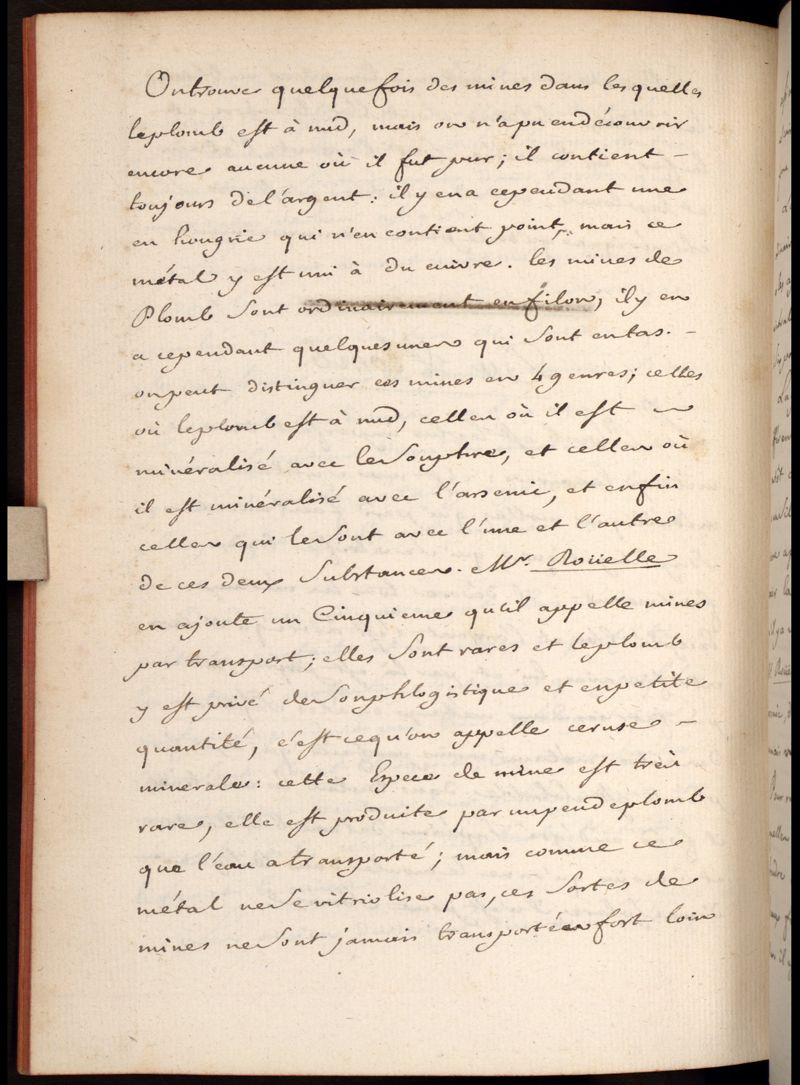 On trouve quelquefois des mines dans lesquelles
le plomb est à nud, mais on n'a pu en découvrir
encore aucune où il fut pur; il contient –
toujours de l'argent: il y en a cependant une
en hongrie qui n'en contient point, mais ce
métal y est uni à du cuivre. les mines de
Plomb sont ordinairement en filon, il y en
a cependant quelques unes qui sont en tas. –
on peut distinguer ces mines en 4 genres; celles
où le plomb est à nud, celles où il est ~
minéralisé avec le souphre, et celles où
il est minéralisé avec l'arsenic, et enfin
celles qui le sont avec l'une et l'autre
de ces deux substances. Mr. Roüelle
en ajoute un Cinquieme qu'il appelle mines
par transport; elles sont rares et le plomb
y est privé de son phlogistique et en petite
quantité, c'est ce qu'on appelle ceruse –
minerale: cette Espece de mine est très
rare, elle est produite par un peu de plomb
que l'eau a transporté; mais comme ce
métal ne se vitriolise pas, ces sortes de
mines ne sont jamais transportées fort loin